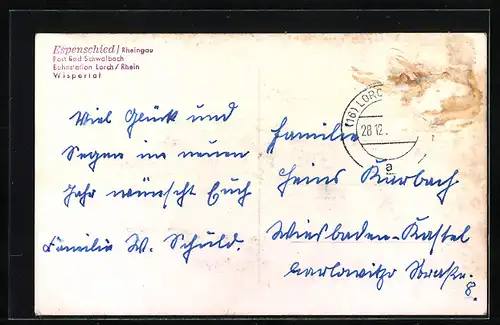 Espenschied / Rheingau
Post Bad Schwalbach
Bahnstation Lorch / Rhein
Wispertal
Viel Glück und
Segen im neuen
Jahr wünscht Euch
Familie W. Schuld.
(16) LORC
28.12.
a
Familie
Heins Kurbach
Wiesbaden-Kastel
Carlowitz Strasse
8.